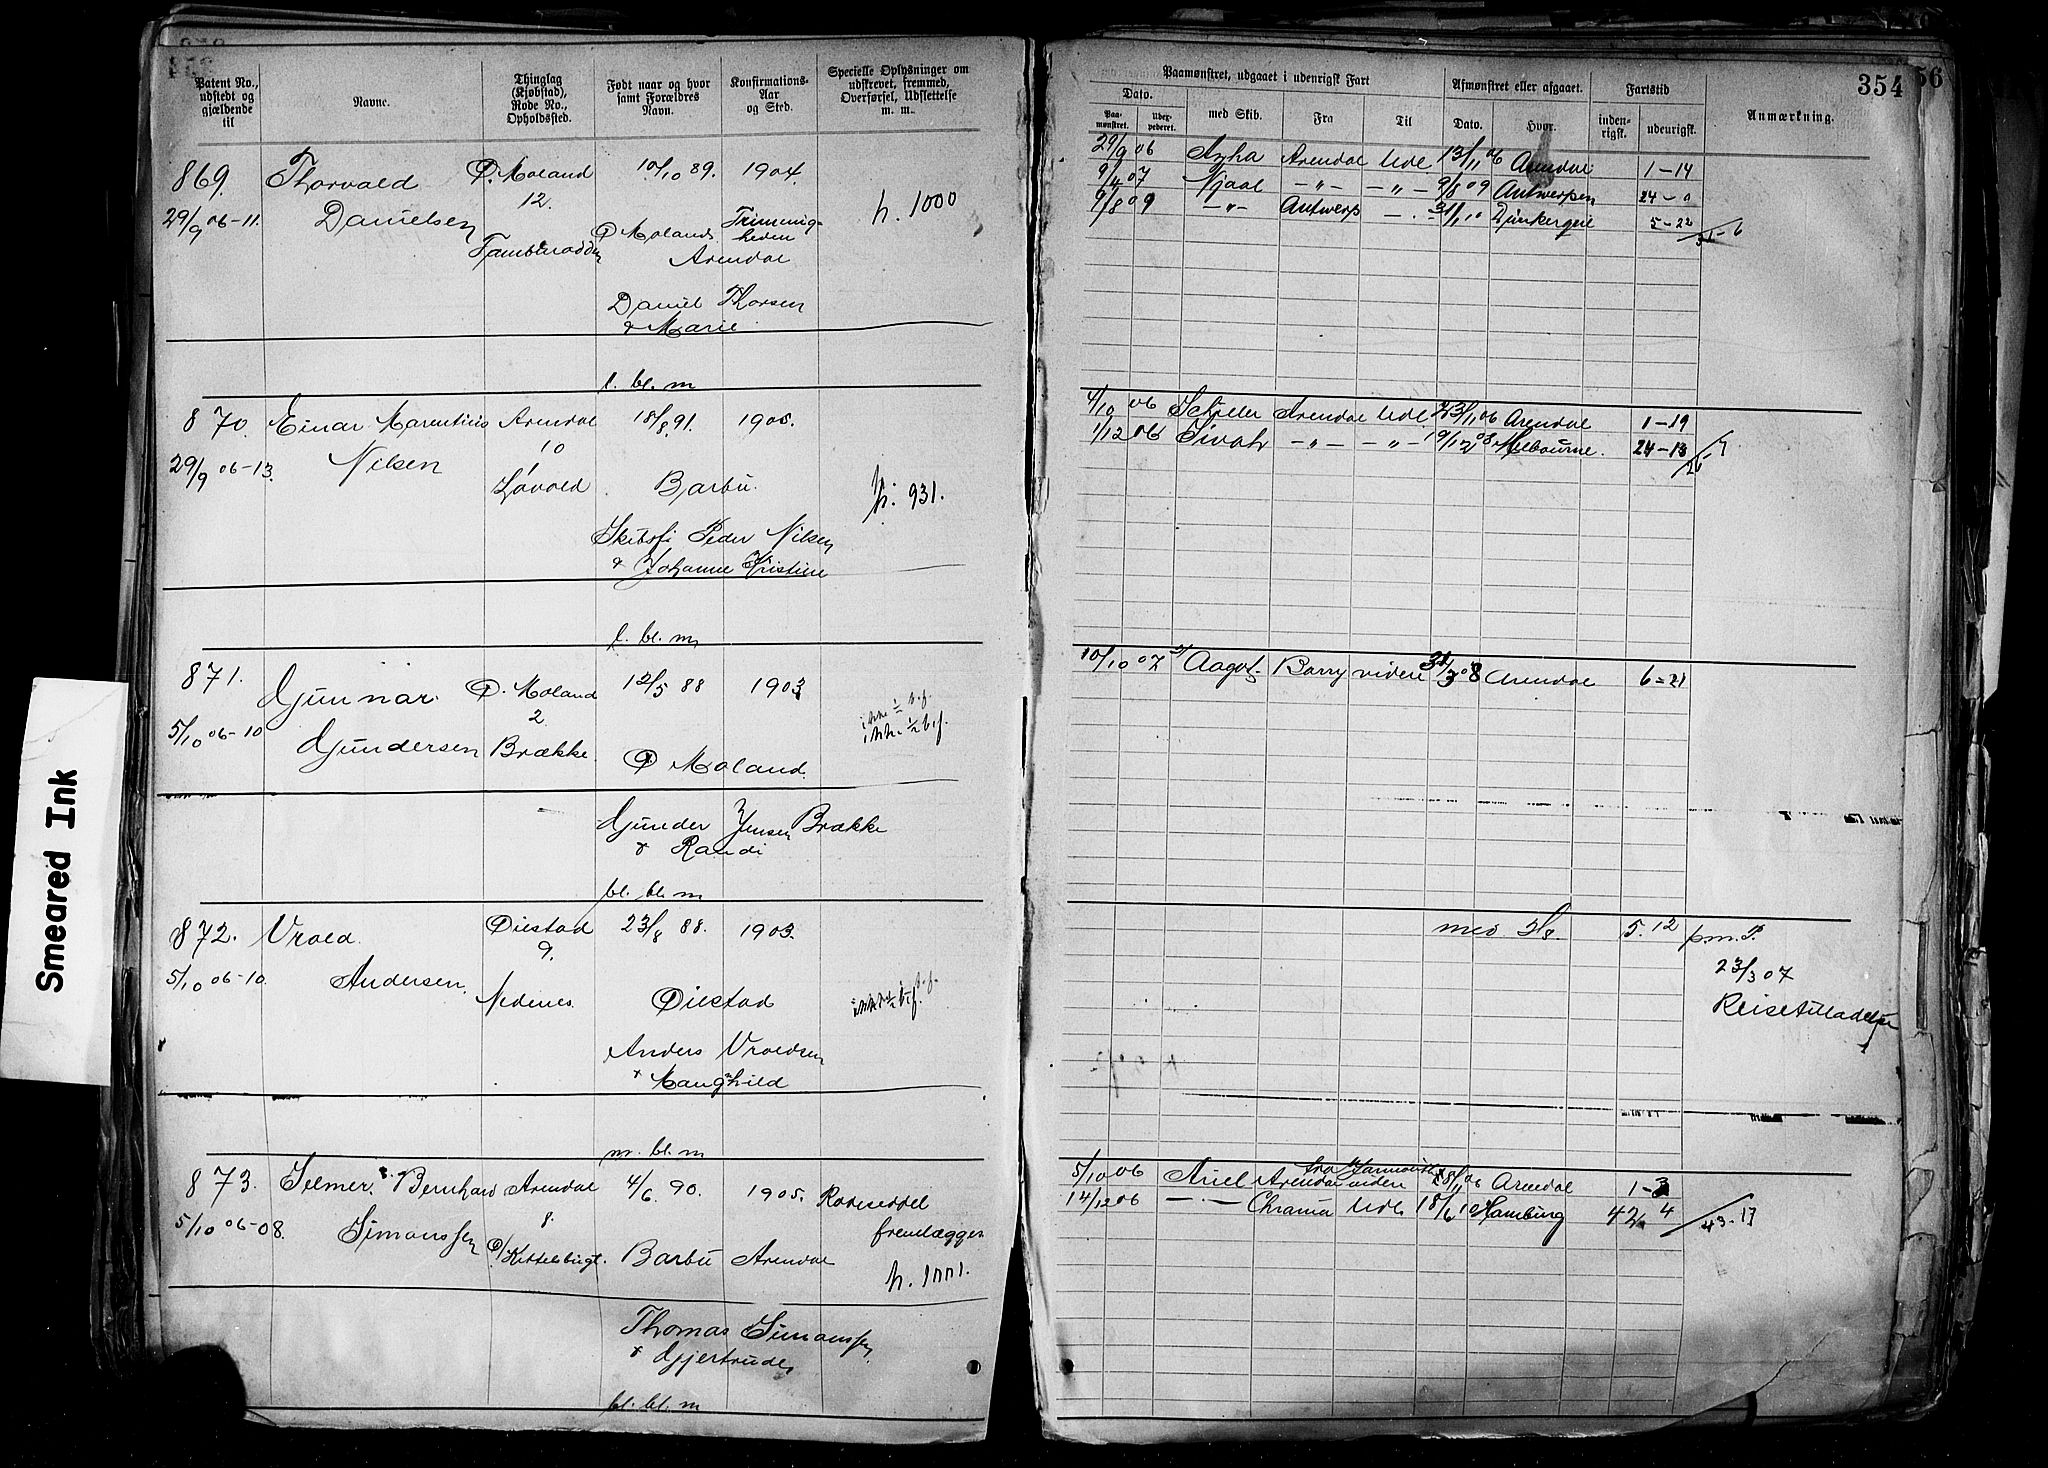 Patent No.,
udstedt og
gjældende
til
Navne.
Thinglag
(Kjøbstad),
Rode No.,
Opholdssted.
Født naar og hvor
samt Forældres
Navn.
Konfirmations-
Aar
og Sted.
Specielle Oplysninger om
udskrevet, fremmed,
Overførsel, Udslettelse
m. m.
869.
29/9 06-11.
Thorvald
Danielsen
Ø. Moland
12.
10/10 89.
Ø Moland
1904.
Trinnenig-
heden
Arendal
h. 1000
Daniel Thorsen
& Marie
l. bl. m
870.
29/9 06-13.
Einar Marentius
Nilsen
Arendal
10
Løvold
18/8 91.
Barbu.
1905.
h. 931.
Skibsf. Peder Nilsen
& Johanne Kristine
l. bl. m
871.
5/10 06-10
Gunnar
Gundersen
Ø. Moland
2
Brække
12/5 88
Ø Moland.
1903
Gunder Jensen Brække
& Randi
bl. bl. m
872.
5/10 06-10
Vrold
Andersen
Øiestad
9.
Nedenes
23/8 88.
Øiestad
1903.
Anders Vroldsen
& Maughild
m. bl. m
873.
5/10 06-08.
Selmer Bernhard
Simonssen
Arendal
8.
Ø/Kittelsbugt.
4/6 90.
Barbu
1905.
Arendal
Rodeseddel
fremlægges
h. 1001.
Thomas Simonssen
& Gjertrude
bl. bl. m
Smeared Ink
354
56
Paamønstret, udgaaet i udenrigst Fart
Afmønstret eller afgaaet.
Fartstid
Anmærkning.
Dato.
Paa-
mønstret.
med Skib.
Fra
Til
Dato.
Hvor.
inden-
rigst.
udenrigst.
29/9 06 Ayha Arendal Udl 13/11 06 Arendal 1-14
9/4 07 Njaal -"- -"- 9/8 09 Antwerpen 24-0
9/8 09 -"- Antwerp 31/1 10 5-22
31-6
4/10 06 Arendal Udl 23/11 06 Arendal 1-19
1/12 06 Sivah -"- -"- 19/12 08 Melbourne. 24-18
26-7
10/10 07 Aagot Barry videre 31/3 08 Arendal 6-21
med 5.12 pm. P.
23/3 07
Reisetilladelse
5/10 06 Ariel Arendal videre 28/11 06 Arendal 1-3
14/12 06 -"- Chrania Udl. 18/6 10 Hamburg 42 4
43-17